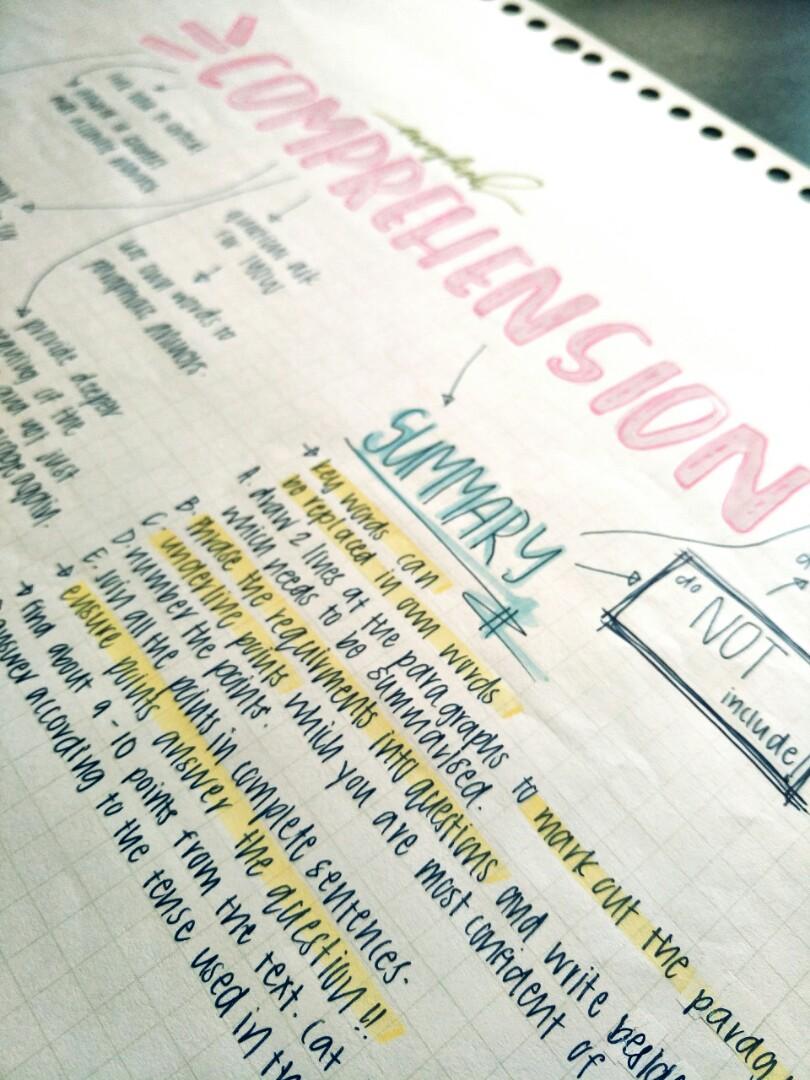 COMPREHENSION
english
questions ask
for "HOW"
use own words to
paraphrase answers.
provide deeper
meaning of the
and not just
again.
SUMMARY
→ key words can #
be replaced in own words
A. draw 2 lines at the paragraphs to mark out the parag
which needs to be summarised.
B. Phrase the requirments into questions and write beside
C. underline points which you are most confident of
D number the points.
E. Join all the points in complete sentences.
→ ensure points answer the question!!
→ find about 9-10 points from the text. (at
answer according to the tense used in th
do NOT
include